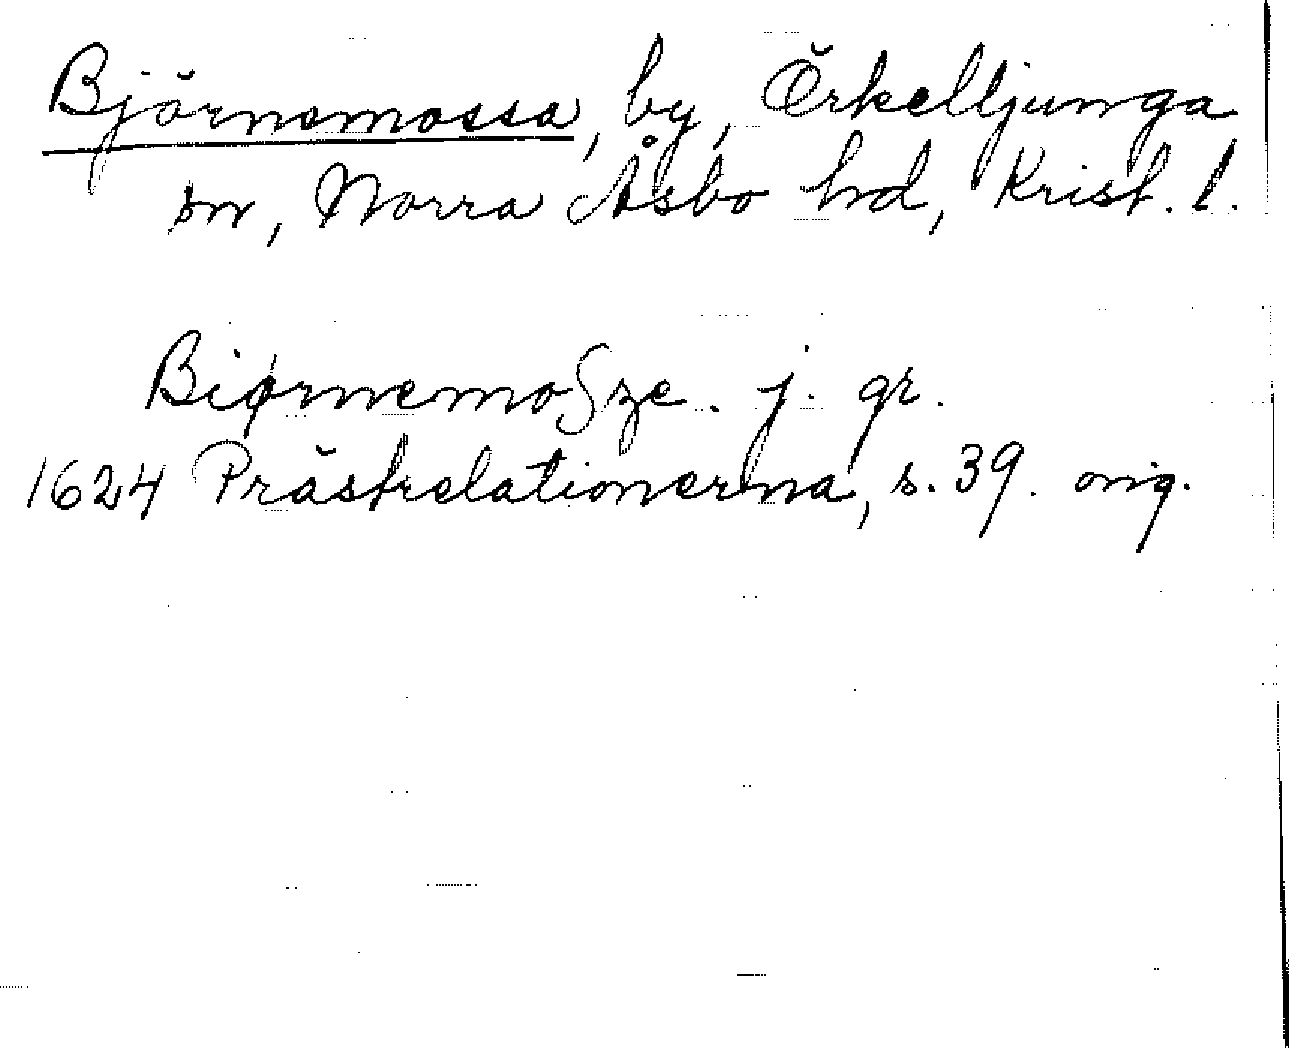 Björnemossa, by, Örkelljunga
sn, Norra Åsbo hd, Krist. l.
Biørnemoſze. j. gr.
1624 Prästrelationerna, s. 39. orig.